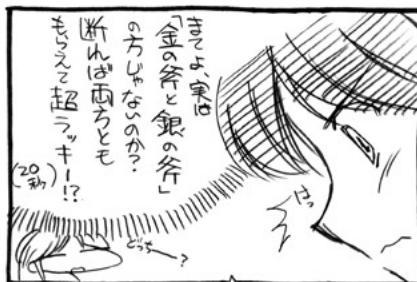 まてよ、実は
「金の斧と銀の斧」
の方じゃないのか?
断れば両方とも
もらえて超ラッキー!?
(20秒)
はっ
どっちー?